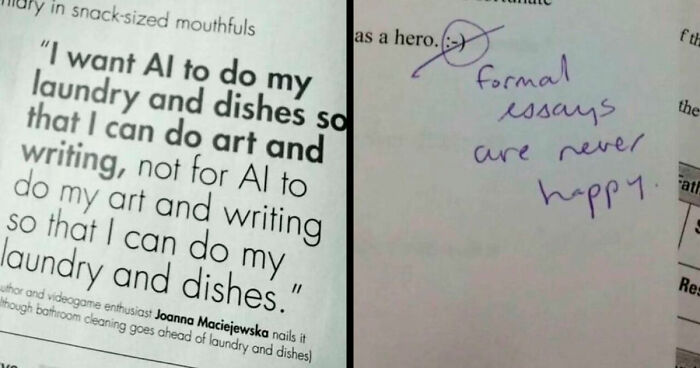 in snack-sized mouthfuls
"I want AI to do my
laundry and dishes so
that I can do art and
writing, not for AI to
do my art and writing
so that I can do my
laundry and dishes."
and videogame enthusiast Joanna Maciejewska nails it
bathroom cleaning goes ahead of laundry and dishes)
as a hero. :-)
formal
essays
are never
happy.
the